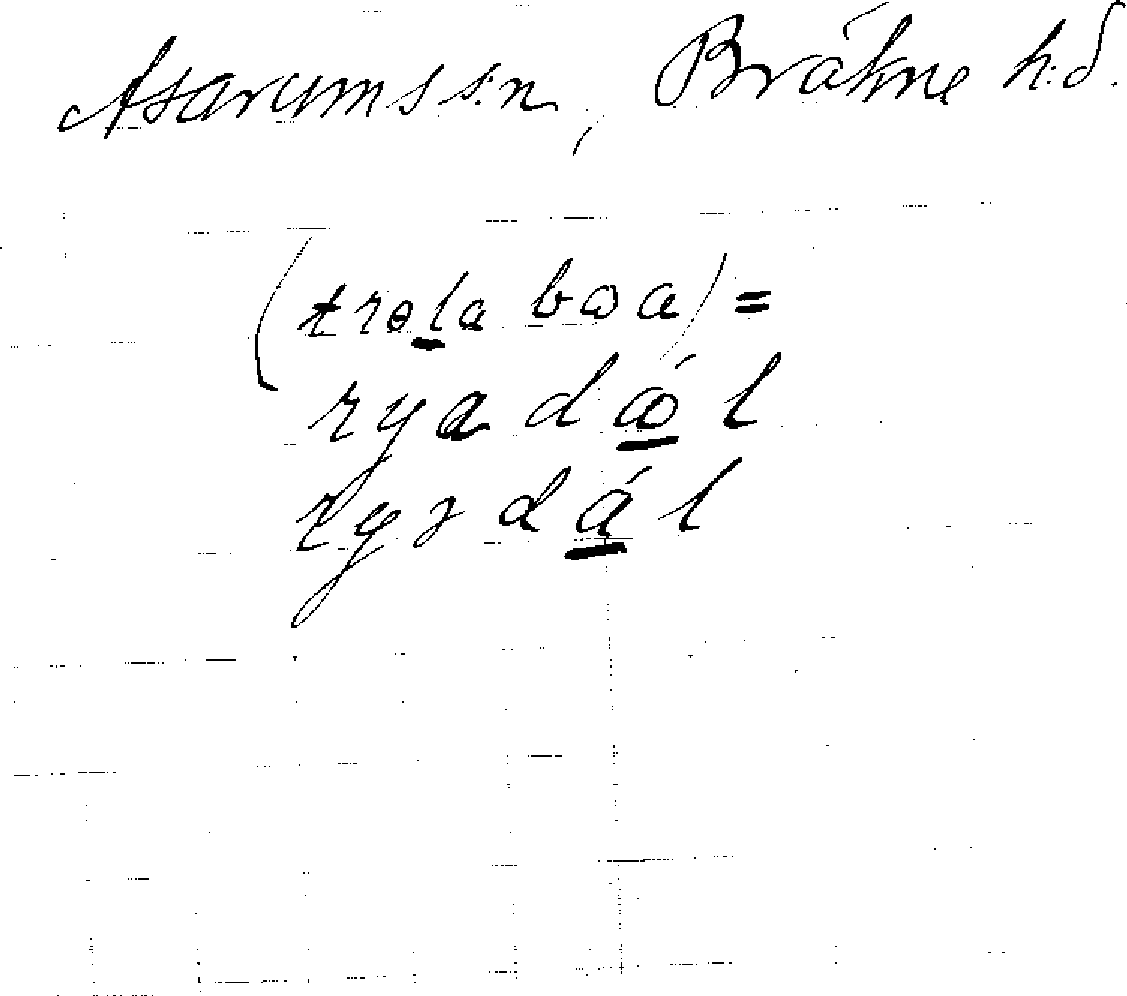 Asarums s:n, Bräkne h:d.
(trɵla bωa) =
rya dώl
rys dál